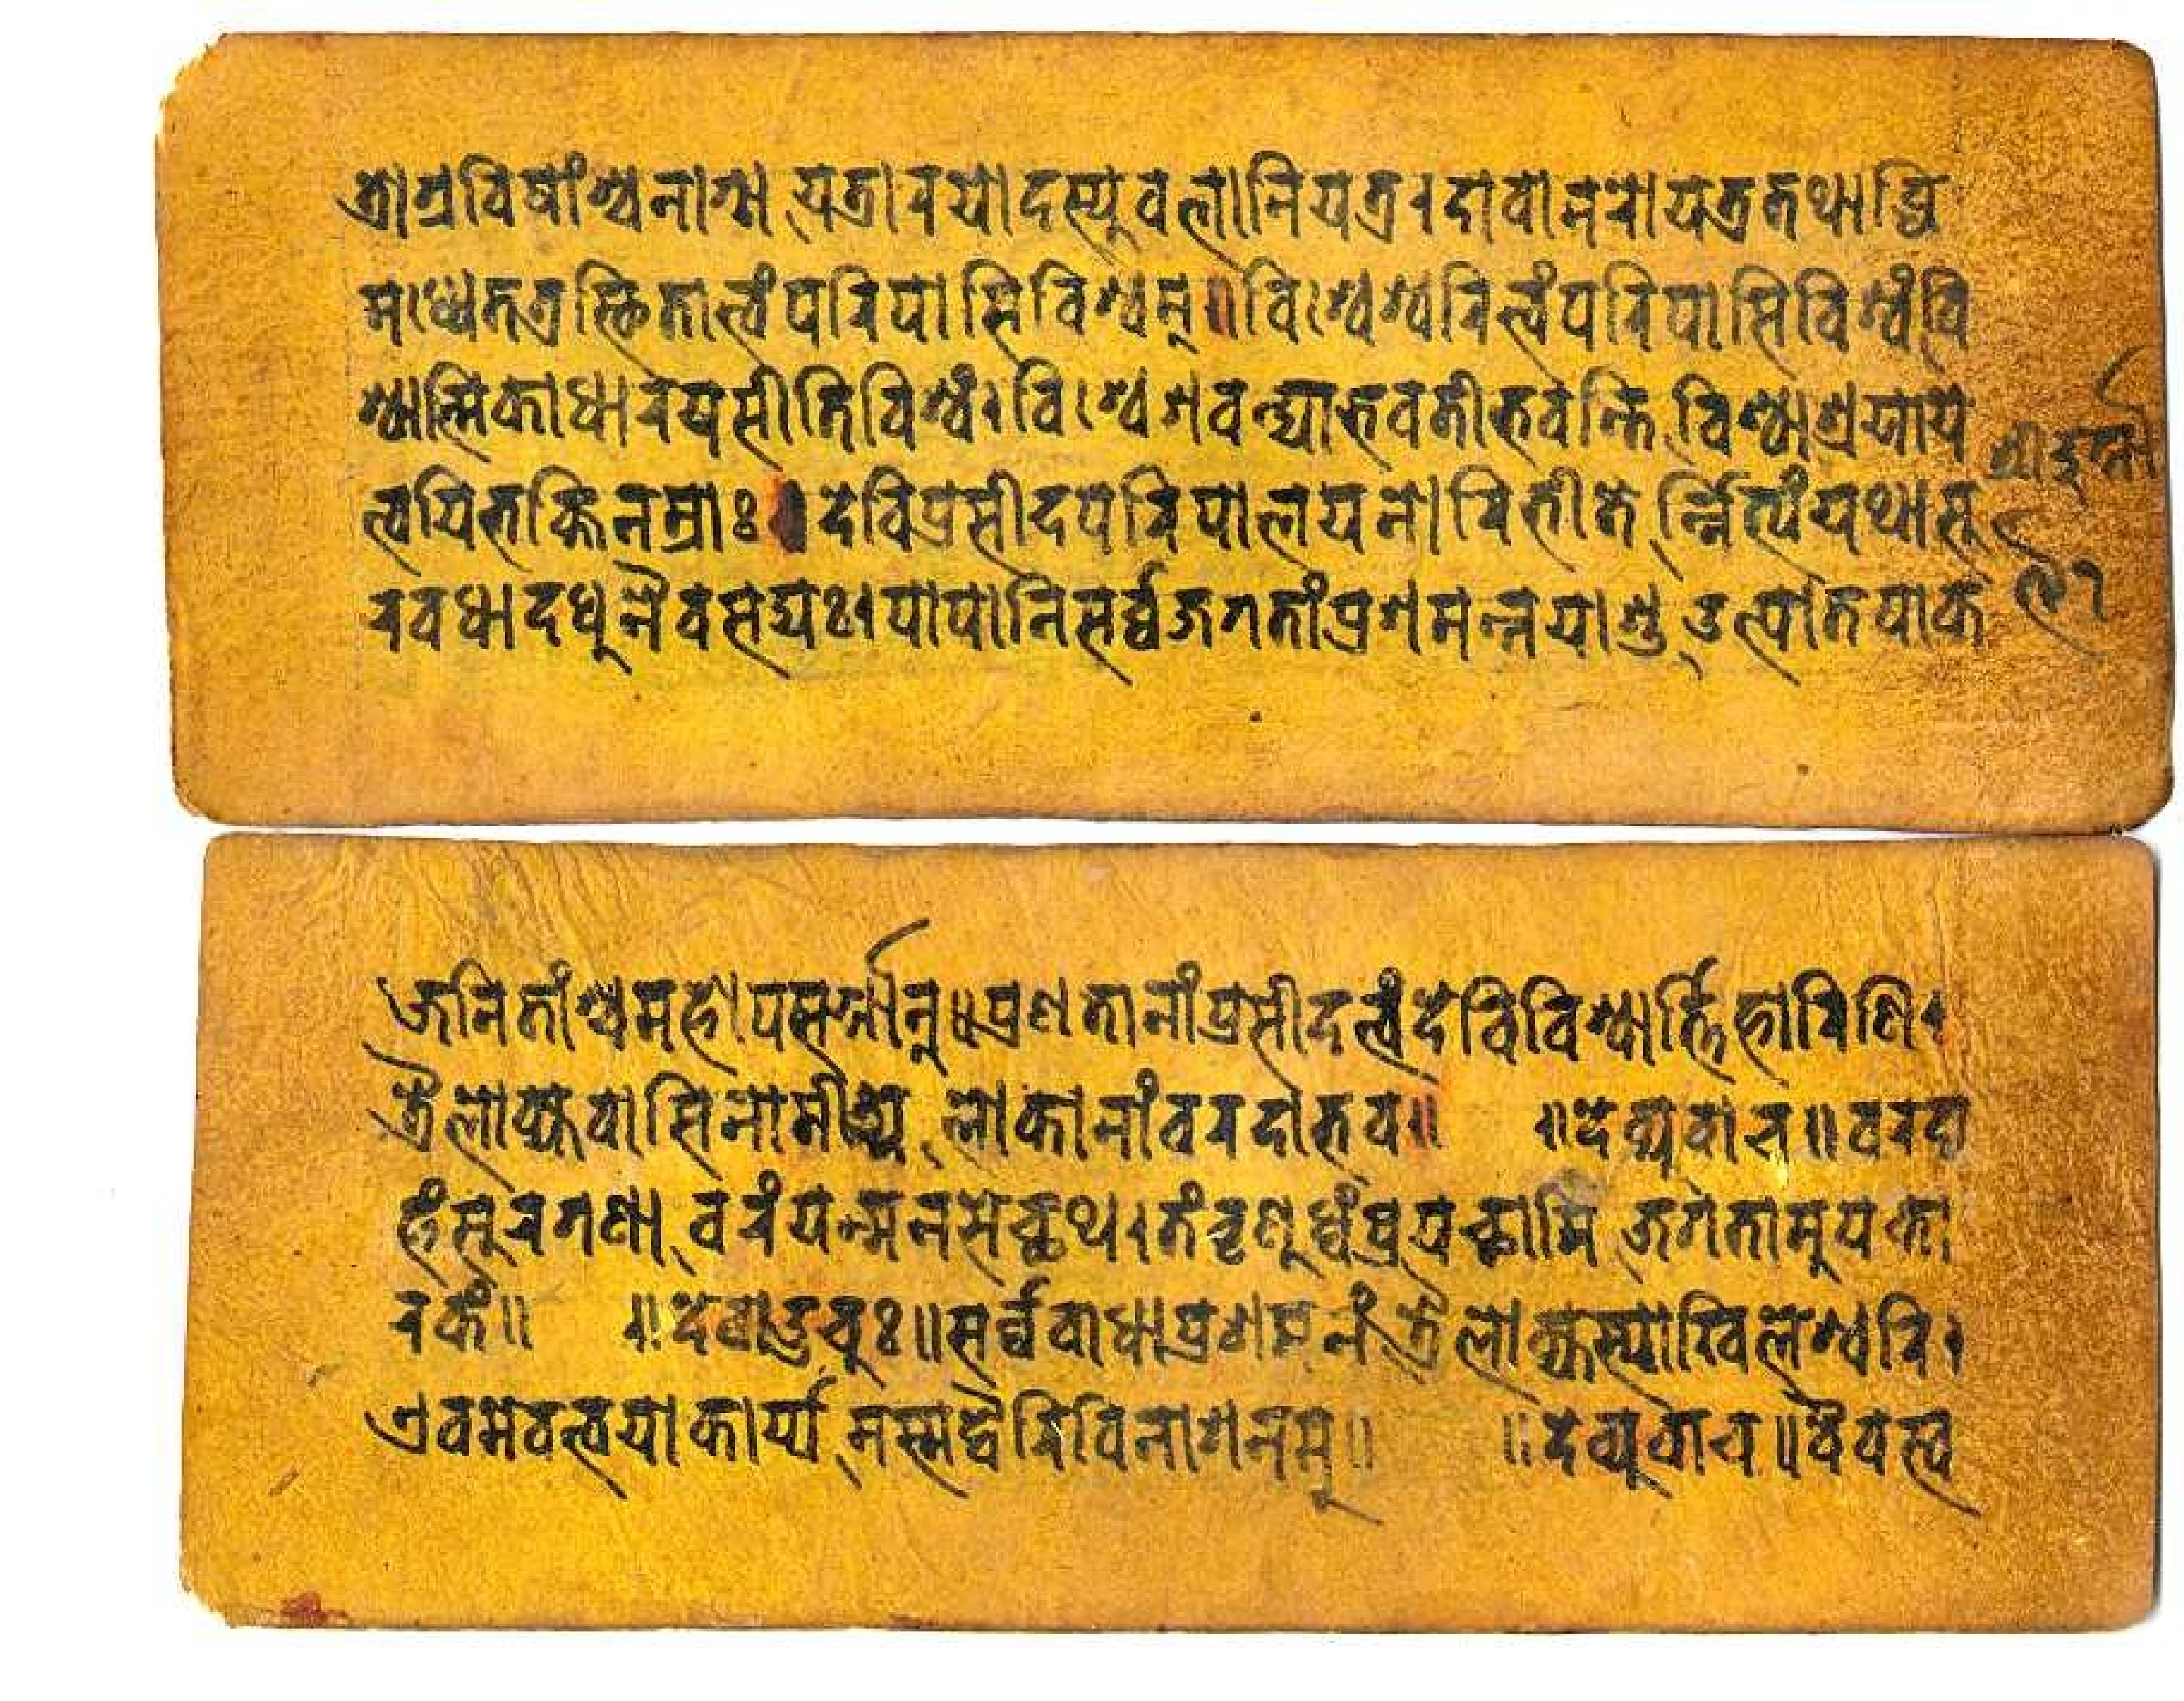 त्रोग्रविषांश्चनागा यत्रारयोदस्युवलानियत्र।दावानलोयत्रतथाब्धि
मध्येतत्रस्थितात्वंपरिपासिविश्वम्॥विश्वेश्वरित्वंपरिपासिविश्वंवि
श्वात्मिकाधारयसीतिविश्वं।विश्वेशवन्द्याभवतीभवन्ति विश्वाश्रयाये
श्रीदुर्गा
त्वयिभक्तिनम्राः॥देविप्रसीदपरिपालयनोरिभीते र्न्नित्यंयथासु
रवधादधुनैवसद्यः।पापानिसर्व्वजगतांप्रशमन्नयाशु उत्पातपाक
जनितांश्चमहोपसर्गान्॥प्रणतानांप्रसीदत्वंदेविविश्वार्त्तिहारिणि।
त्रैलोक्यवासिनामीड्ये लोकानांवरदाभव॥ ॥देव्युवाच॥वरदा
हंसुरगणा वरंयन्मनसेच्छथ।तंवृणुध्वंप्रयच्छामि जगतामुपका
रकं॥ ॥देवाउचुः॥सर्व्ववाधाप्रशमनं त्रैलोक्यस्याखिलेश्वरि।
एवमेवत्वयाकार्य्य मस्मद्वैरिविनाशनम्॥ ॥देव्युवाच॥वैवस्व